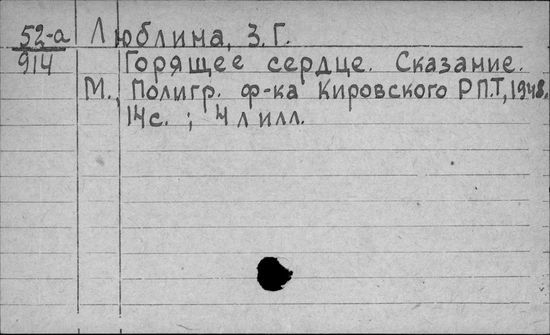 52-а Люблина, З. Г.
914 Горящее сердце. Сказание.
М., Полигр. ф-ка Кировского РПТ, 1948.
14с. ; 4 л илл.